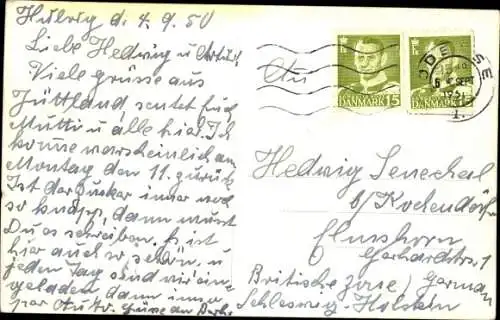 Hulvig d. 4. 9. 50
Liebe Hedwig u Artur
Viele grüsse aus
Jüttland, sentet Euch
Mutti u alle hier. Ich
komme warscheinlich am
Montag den 11. zurück
Ist der Zucker immer noch
so knapp, dann must
Du es schreiben. Es ist
hier auch so schön, u
jeden Tag sind wir ein-
geladen dann immer
par Auto. Grüsse an
An
DANMARK 15
DANMARK 15
ODENSE
SEPT
1.
Hedwig Senechal
b/ Kochendörf
Elmshorn
Gerhardstr. 1
Britische Zone) German
Schleswig-Holstein